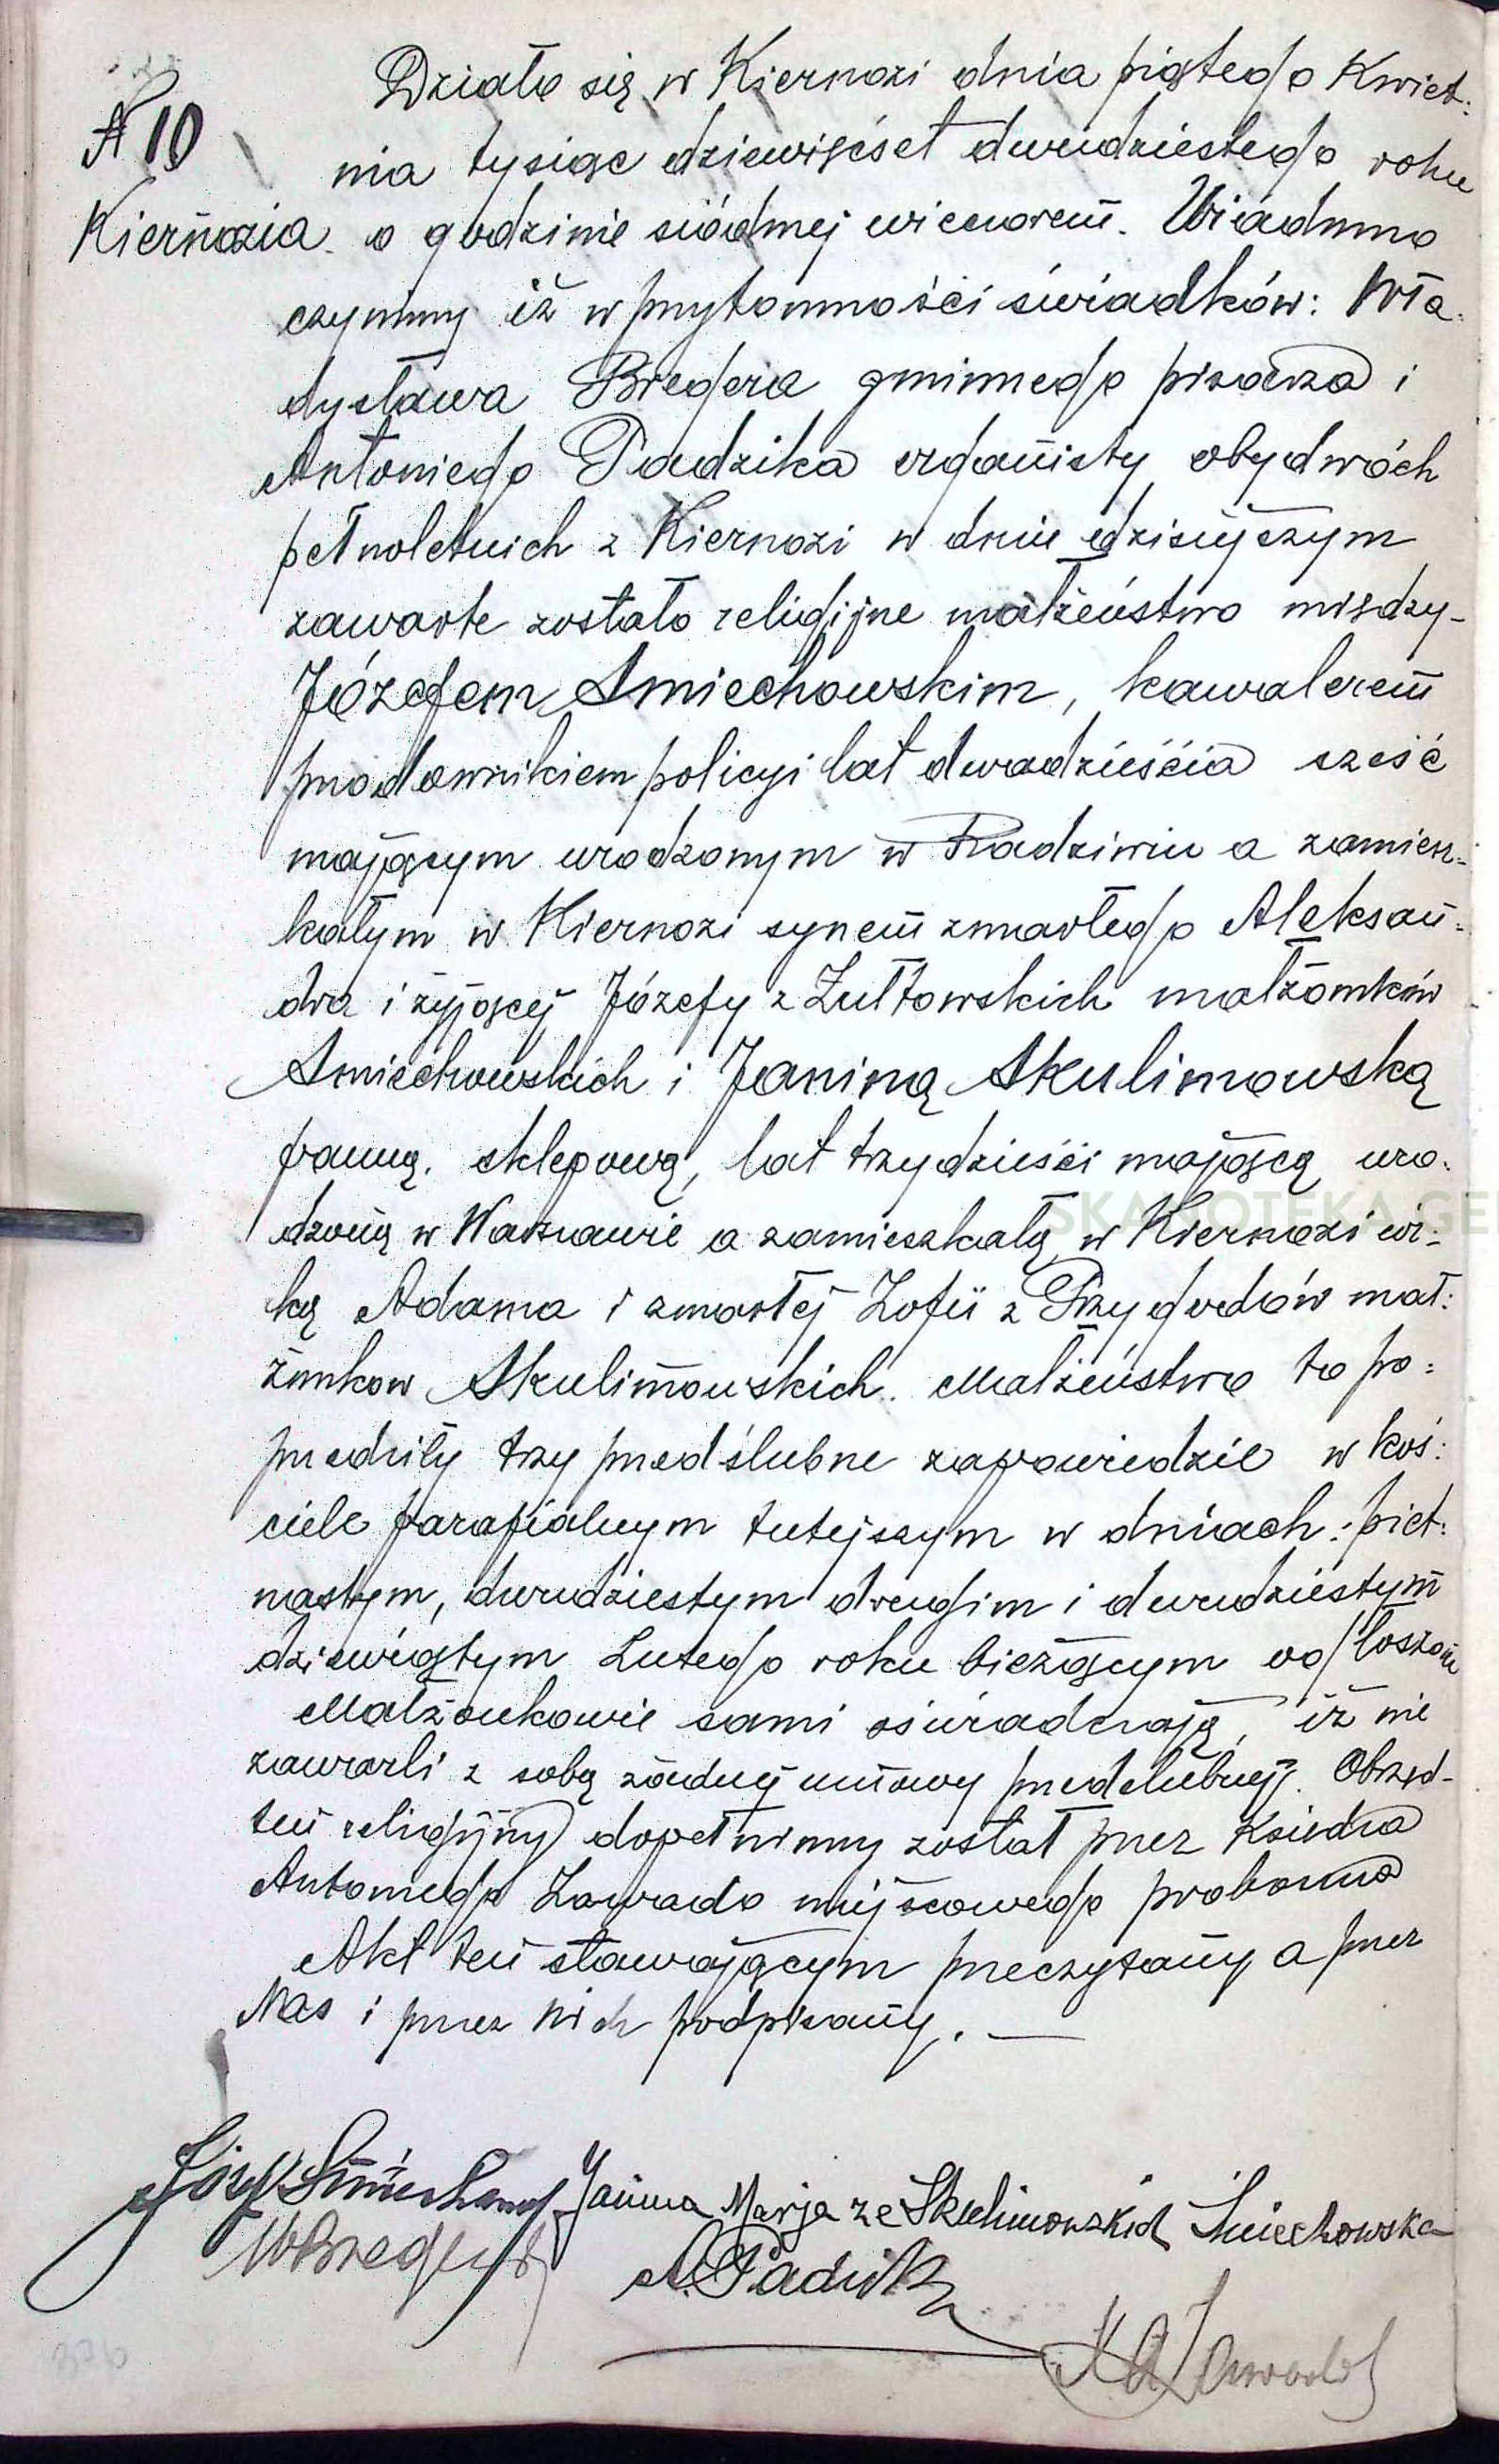 N 10
Kiernozia
Działo się w Kiernozi dnia piątego Kwiet:
nia tysiąc dziewięćset dwudziestego roku
o godzinie siódmej wieczorem. Wiadomo
czynimy iż w przytomności świadków: Wła:
dysława Bregera gminnego pisarza i
Antoniego Padzika organisty obydwóch
pełnoletnich z Kiernozi w dniu dzisiejszym
zawarte zostało religijne małżeństwo między-
Józefem Smiechowskim, kawalerem
przodownikiem policyi lat dwadzieścia sześć
mającym urodzonym w Radziwiu a zamiesz-
kałym w Kiernozi synem zmarłego Aleksan:
dra i żyjącej Józefy z Żułtowskich małżonków
Smiechowskich i Janiną Skulimowską
panną, sklepową, lat trzydzieści mającą uro:
dzoną w Warszawie a zamieszkałą w Kiernozi cór:
ką Adama i zmarłej Zofii z Przygodów mał:
żonkow Skulimowskich. Małżeństwo to po:
przedziły trzy przedślubne zapowiedzie w koś:
ciele parafialnym tutejszym w dniach: piet:
nastym, dwudziestym drugim i dwudziestym
dziewiątym Lutego roku bieżącym ogłoszone
Małżonkowie sami oświadczają, iż nie
zawarli z sobą żadnej umowy przedślubnej. Obrzęd-
ten religijny dopełniony został przez Księdza
Antoniego Zawado miejscowego proboszcza
Akt ten stawającym przeczytany a przez
Nas i przez nich podpisany.
Józef Śmiechowski Janina Marja ze Skulimowskich Śmiechowska
WBreger
A. Padzik
KA Zawada
SKANOTEKA GE